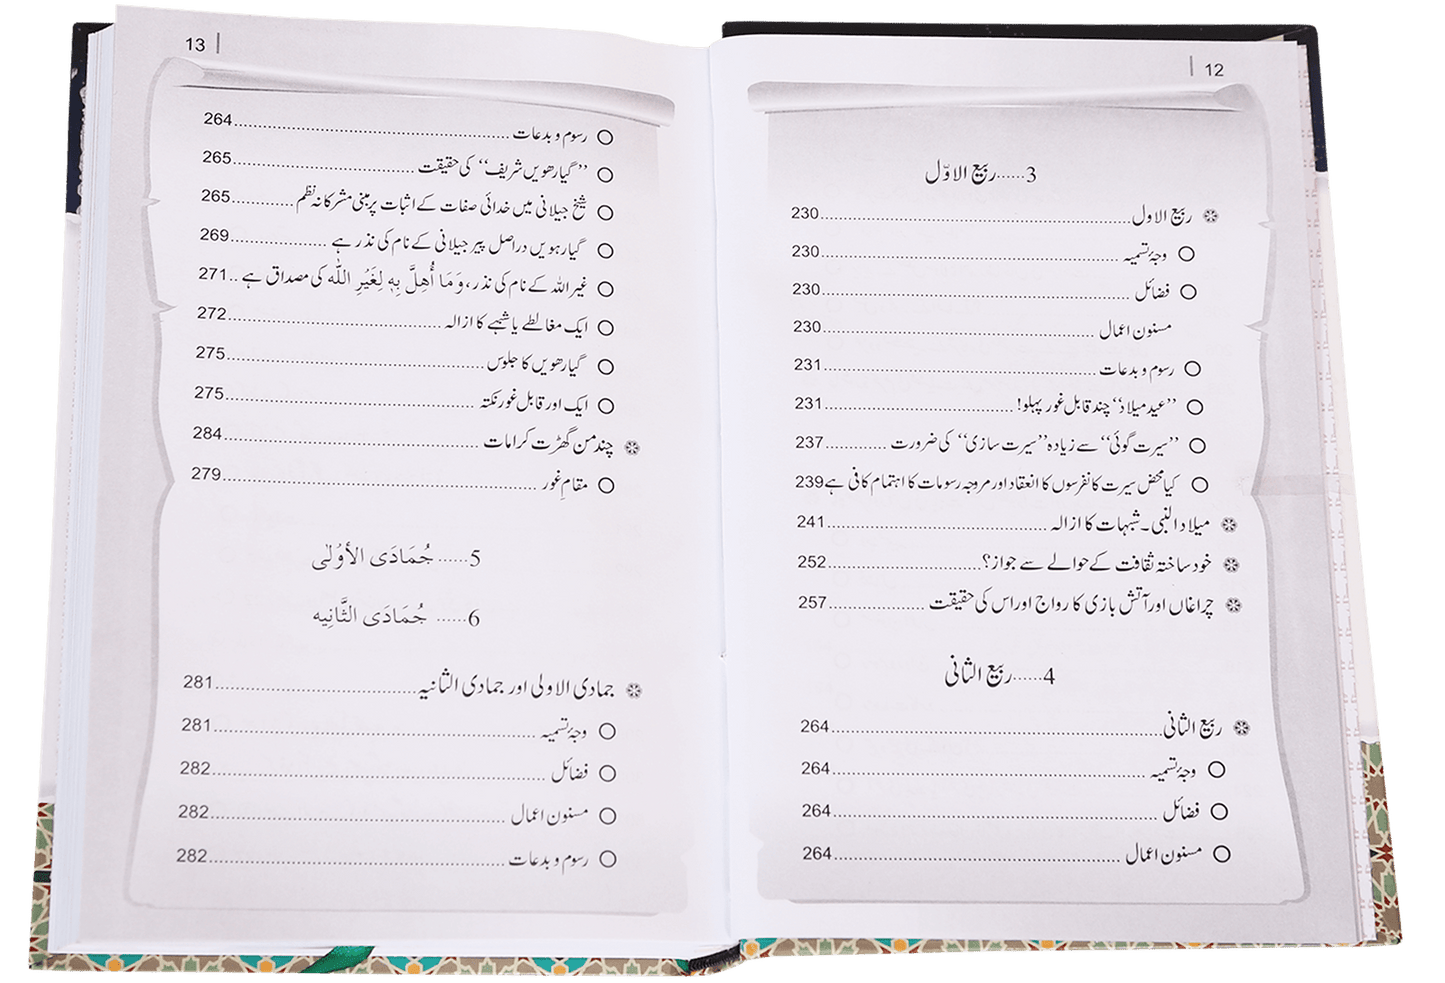 12
3......ربیع الاوّل
ربیع الاول..............................230
وجۂ تسمیہ..............................230
فضائل..............................230
مسنون اعمال..............................230
رسوم و بدعات..............................231
’’عید میلاد‘‘ چند قابل غور پہلو!..............................231
’’سیرت گوئی‘‘ سے زیادہ ’’سیرت سازی‘‘ کی ضرورت............237
کیا محض سیرت کانفرسوں کا انعقاد اور مروجہ رسومات کا اہتمام کافی ہے 239
میلاد النبی۔شبہات کا ازالہ..............................241
خود ساختہ ثقافت کے حوالے سے جواز؟..............................252
چراغاں اور آتش بازی کا رواج اور اس کی حقیقت..................257
4......ربیع الثانی
ربیع الثانی..............................264
وجۂ تسمیہ..............................264
فضائل..............................264
مسنون اعمال..............................264
13
رسوم و بدعات..............................264
’’گیارھویں شریف‘‘ کی حقیقت..............................265
شیخ جیلانی میں خدائی صفات کے اثبات پر مبنی مشرکانہ نظم............265
گیارہویں دراصل پیر جیلانی کے نام کی نذر ہے..................269
غیر اللہ کے نام کی نذر، وَمَا أُهِلَّ بِهٖ لِغَيْرِ اللّٰه کی مصداق ہے..271
ایک مغالطے یا شبہے کا ازالہ..............................272
گیارھویں کا جلوس..............................275
ایک اور قابل غور نکتہ..............................275
چند من گھڑت کرامات..............................284
مقام غور..............................279
5......جُمَادَى الأوْلٰى
6......جُمَادَى الثَّانِيه
جمادی الاولی اور جمادی الثانیہ..............................281
وجۂ تسمیہ..............................281
فضائل..............................282
مسنون اعمال..............................282
رسوم و بدعات..............................282